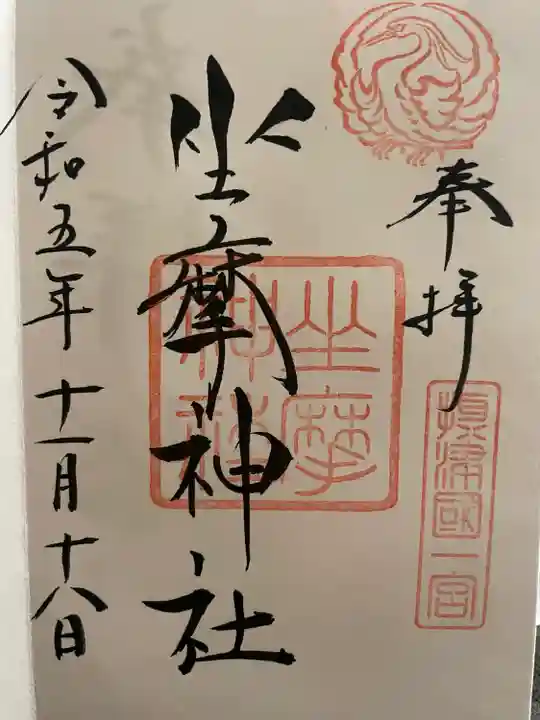 奉拝
摂津國一宮
坐摩神社
坐摩神社
令和五年十一月十八日